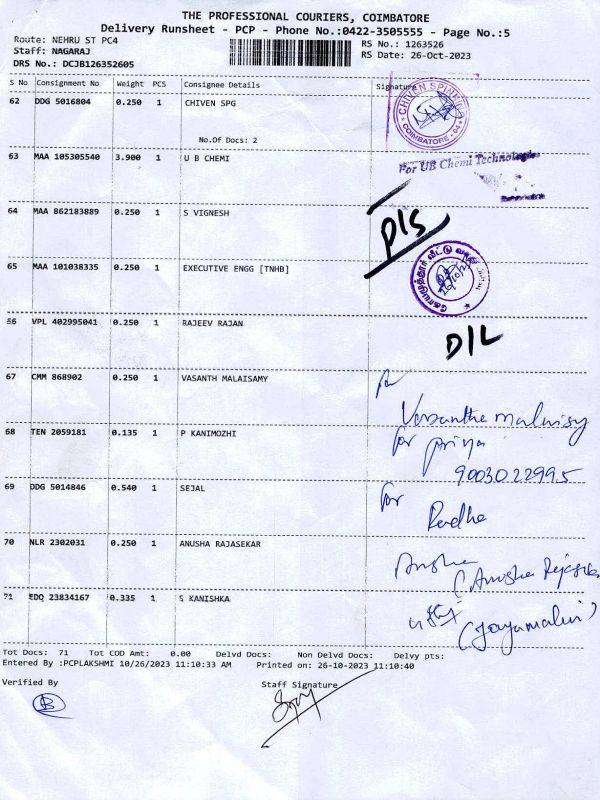 THE PROFESSIONAL COURIERS, COIMBATORE
Delivery Runsheet - PCP - Phone No.:0422-3505555 - Page No.:5
Route: NEHRU ST PC4
RS No.: 1263526
Staff: NAGARAJ
RS Date: 26-Oct-2023
DRS No.: DCJB126352605
S No Consignment No Weight PCS Consignee Details Signature
62 DDG 5016804 0.250 1 CHIVEN SPG
CHIVEN SPINNING
COIMBATORE - 04
No.Of Docs: 2
63 MAA 105305540 3.900 1 U B CHEMI
For UB Chemi Technologies
64 MAA 862183889 0.250 1 S VIGNESH
D/S
65 MAA 101038335 0.250 1 EXECUTIVE ENGG [TNHB]
66 VPL 402995041 0.250 1 RAJEEV RAJAN
D/L
67 CMM 868902 0.250 1 VASANTH MALAISAMY
for
Vasantha malaisy
68 TEN 2059181 0.135 1 P KANIMOZHI
for priya
9003022995
69 DDG 5014846 0.540 1 SEJAL
for
Radha
70 NLR 2302031 0.250 1 ANUSHA RAJASEKAR
Anusha
(Anusha Rajasek
71 EDQ 23834167 0.335 1 S KANISHKA
(Jayamalini)
Tot Docs: 71 Tot COD Amt: 0.00 Delvd Docs: Non Delvd Docs: Delvy pts:
Entered By :PCPLAKSHMI 10/26/2023 11:10:33 AM Printed on: 26-10-2023 11:10:40
Verified By
Staff Signature